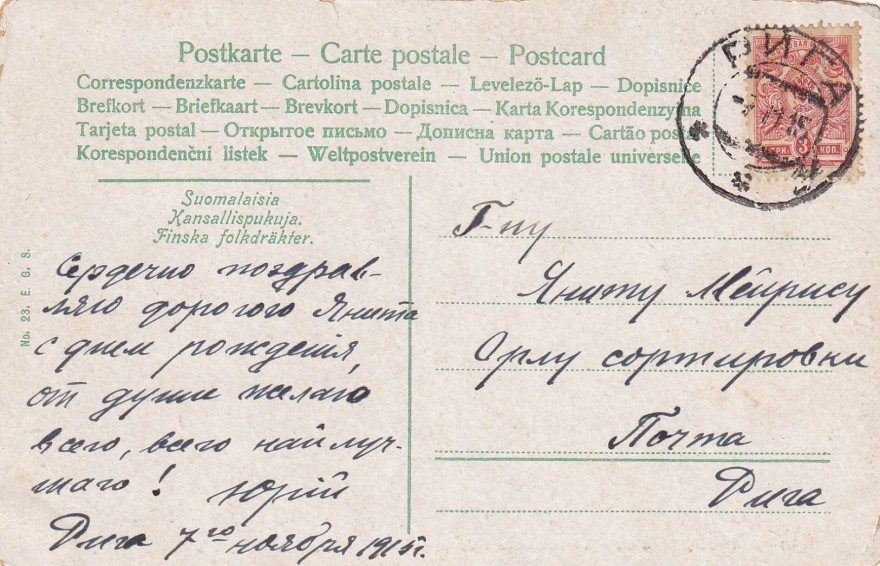 Postkarte — Carte postale — Postcard
Correspondenzkarte — Cartolina postale — Levelező-Lap — Dopisnice
Brefkort — Briefkaart — Brevkort — Dopisnica — Karta Korespondenzyjna
Tarjeta postal — Открытое письмо — Дописна карта — Cartão postal
Korespondenční listek — Weltpostverein — Union postale universelle
РИГА
3
КОП.
Suomalaisia
Kansallispukuja.
Finska folkdräkter.
No. 23. E. G. S.
Сердечно поздрав-
ляю дорогого Янита
с днем рождения,
от души желаю
всего, всего найлуч-
шаго! Юрій
Рига 7го ноября 1915г.
Г-ну
Янижу Мейрису
Орлу сортировки
Почта
Рига